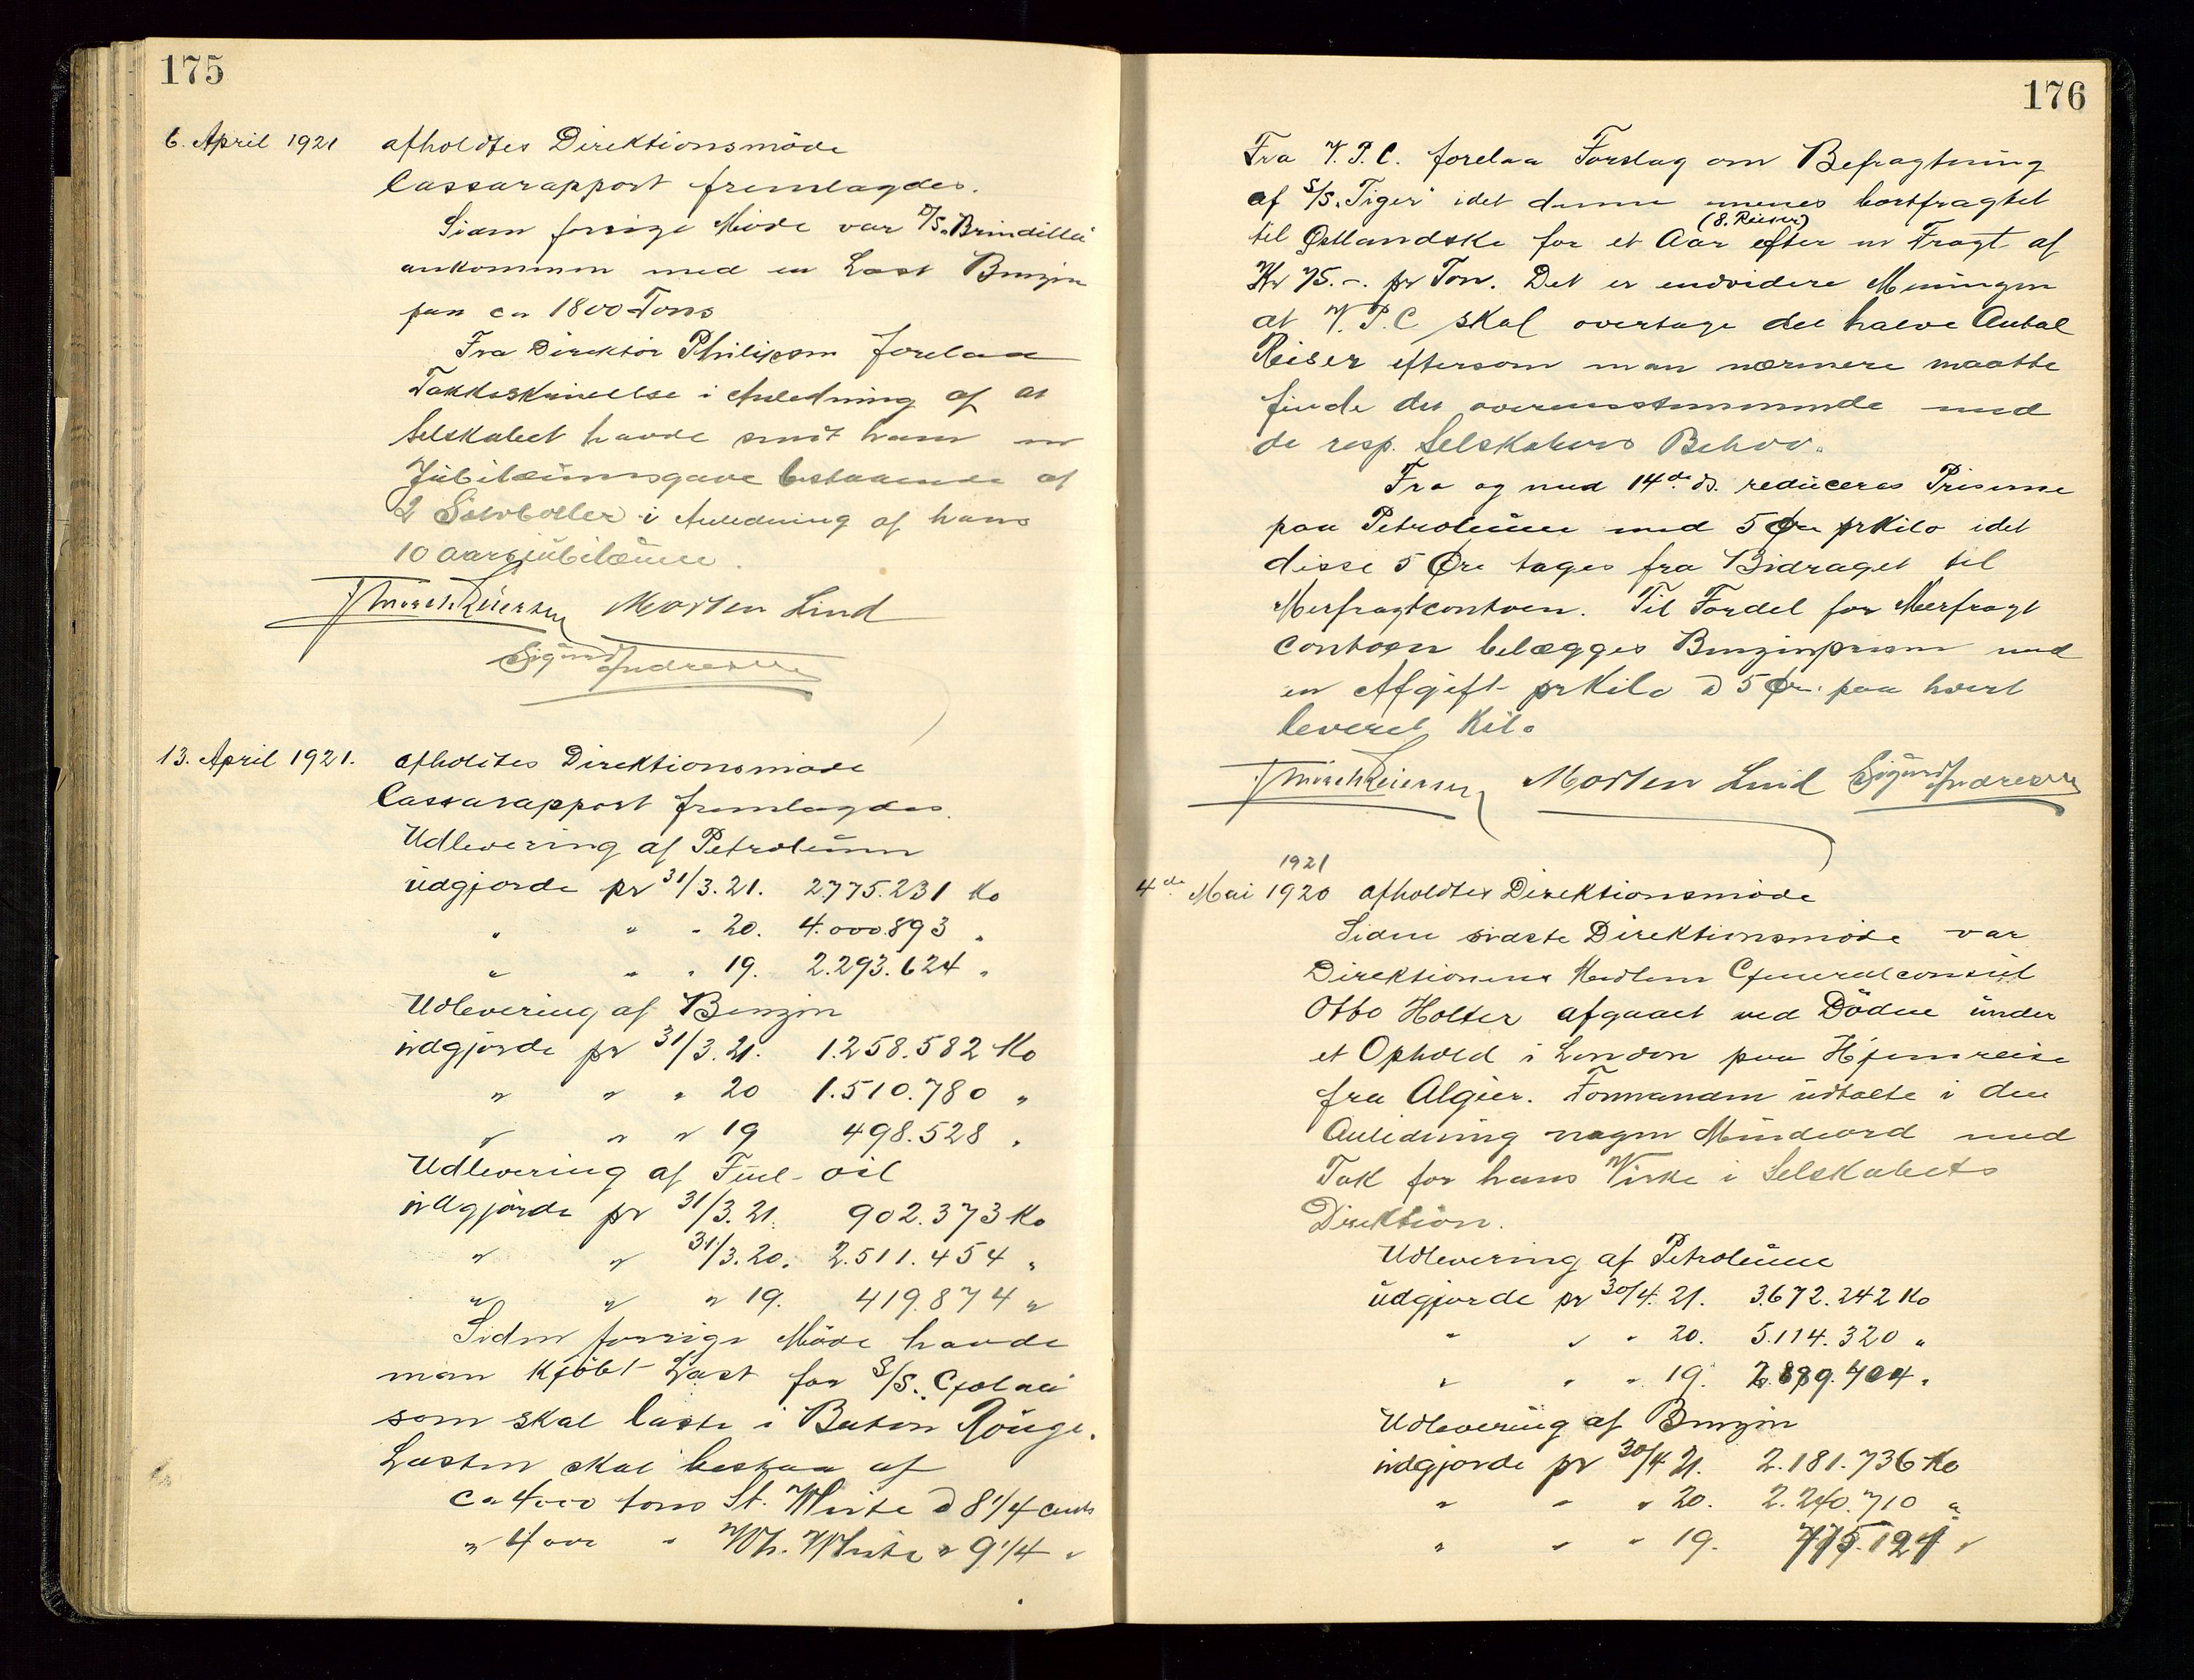 175
6. April 1921 afholdtes Direktionsmöde
Cassarapport fremlagdes.
Siden forrige Möde var D/S „Brindilla"
ankommen med en Last Benzin
paa ca 1800 Tons
Fra Direktör Philipson forelaa
Takkeskrivelse i Anledning af at
Selskabet havde sendt ham en
Jubilæumsgave bestaaende af
2 Sølvboller i Anledning af hans
10 aarsjubilæum.
Morten Lind
Sigurd Andresen
13. April 1921. afholdtes Direktionsmöde
Cassarapport fremlagdes.
Udlevering af Petroleum
udgjorde pr 31/3.21. 2.775.231 Ko
" " " 20. 4.000.893 "
" " " 19. 2.293.624 "
Udlevering af Benzin
udgjorde pr 31/3.21. 1.258.582 Ko
" " " 20 1.510.780 "
" " " 19 498.528 "
Udlevering af Fuel-oil
udgjorde pr 31/3.21. 902.373 Ko
" " 31/3.20. 2.511.454 "
" " " 19. 419.874 "
Siden forrige Möde havde
man kjöbt Last for S/S.
som skal laste i Baton Rouge.
Lasten skal bestaa af
ca 4000 tons St. White à 8 1/4 cents
" 4000 " W. White " 9 1/4 "
176
Fra V.P.C. forelaa Forslag om Befragtning
af S/S „Tiger" idet denne menes bortfragtet
til Østlandske for et Aar (8. Reiser) efter en Fragt af
Kr 75.-. pr Ton. Det er endvidere Meningen
at V.P.C skal overtage det halve Antal
Reiser eftersom man nærmere maatte
finde det overensstemmende med
de resp. Selskabers Behov.
Fra og med 14de ds. reduceres Priserne
paa Petroleum med 5 Øre pr Kilo idet
disse 5 Øre tages fra Bidraget til
Merfragtcontoen. Til Fordel for Merfragt
contoen belægges Benzinprisen med
en Afgift pr Kilo à 5 Øre paa hvert
leveret Kilo
Morten Lind Sigurd Andresen
1921
4de Mai 1920 afholdtes Direktionsmöde
Siden sidste Direktionsmöde var
Direktionens Medlem Generalconsul
Otto Holter afgaaet ved Döden under
et Ophold i London paa Hjemreise
fra Algier. Formanden udtalte i den
Anledning nogen Mindeord med
Tak for hans Virke i Selskabets
Direktion.
Udlevering af Petroleum
udgjorde pr 30/4.21. 3.672.242 Ko
" " " 20. 5.114.320 "
" " " 19. 2.889.404 "
Udlevering af Benzin
udgjorde pr 30/4 21. 2.181.736 Ko
" " " 20. 2.240.710 "
" " " 19. 775.127 "